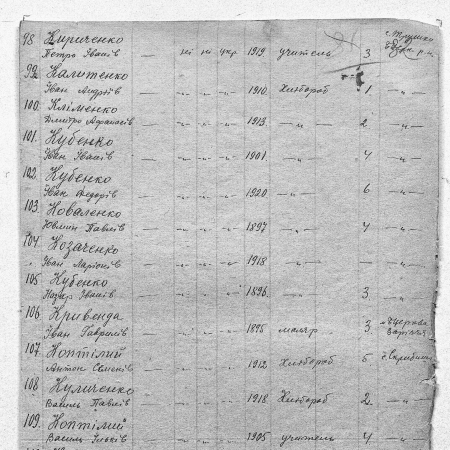 98. Кириченко
Петро Іванів — ні ні укр. 1919 учитель 3
99. Калитенко
Іван Андріїв — -„- -„- -„- 1910. Хлібороб 1 -„-
100. Кліменко
Дмитро Афанасів — -„- -„- -„- 1913 -„- 2 -„-
101. Кубенко
Іван Іванів — -„- -„- -„- 1901. -„- 4 -„-
102. Кубенко
Іван Федорів — -„- -„- -„- 1920 -„- 6 -„-
103. Коваленко
Павлів — -„- -„- -„- 1897 -„- 4 -„-
104. Козаченко
Іван Ларіонів — -„- -„- -„- 1918 -„- -„-
105 Кубенко
Іванів — -„- -„- -„- 1896. -„- 3 -„-
106 Кривенда
Іван Гаврилів — -„- -„- -„- 1895 маляр 3
107. Коптілий
Антон Семенів — -„- -„- -„- 1912 Хлібороб 5
108 Куличенко
Василь Павлів — -„- -„- -„- 1918 Хлібороб 2 -„-
109. Коптілий
Василь Ільків — -„- -„- -„- 1905 учитель 4 -„-